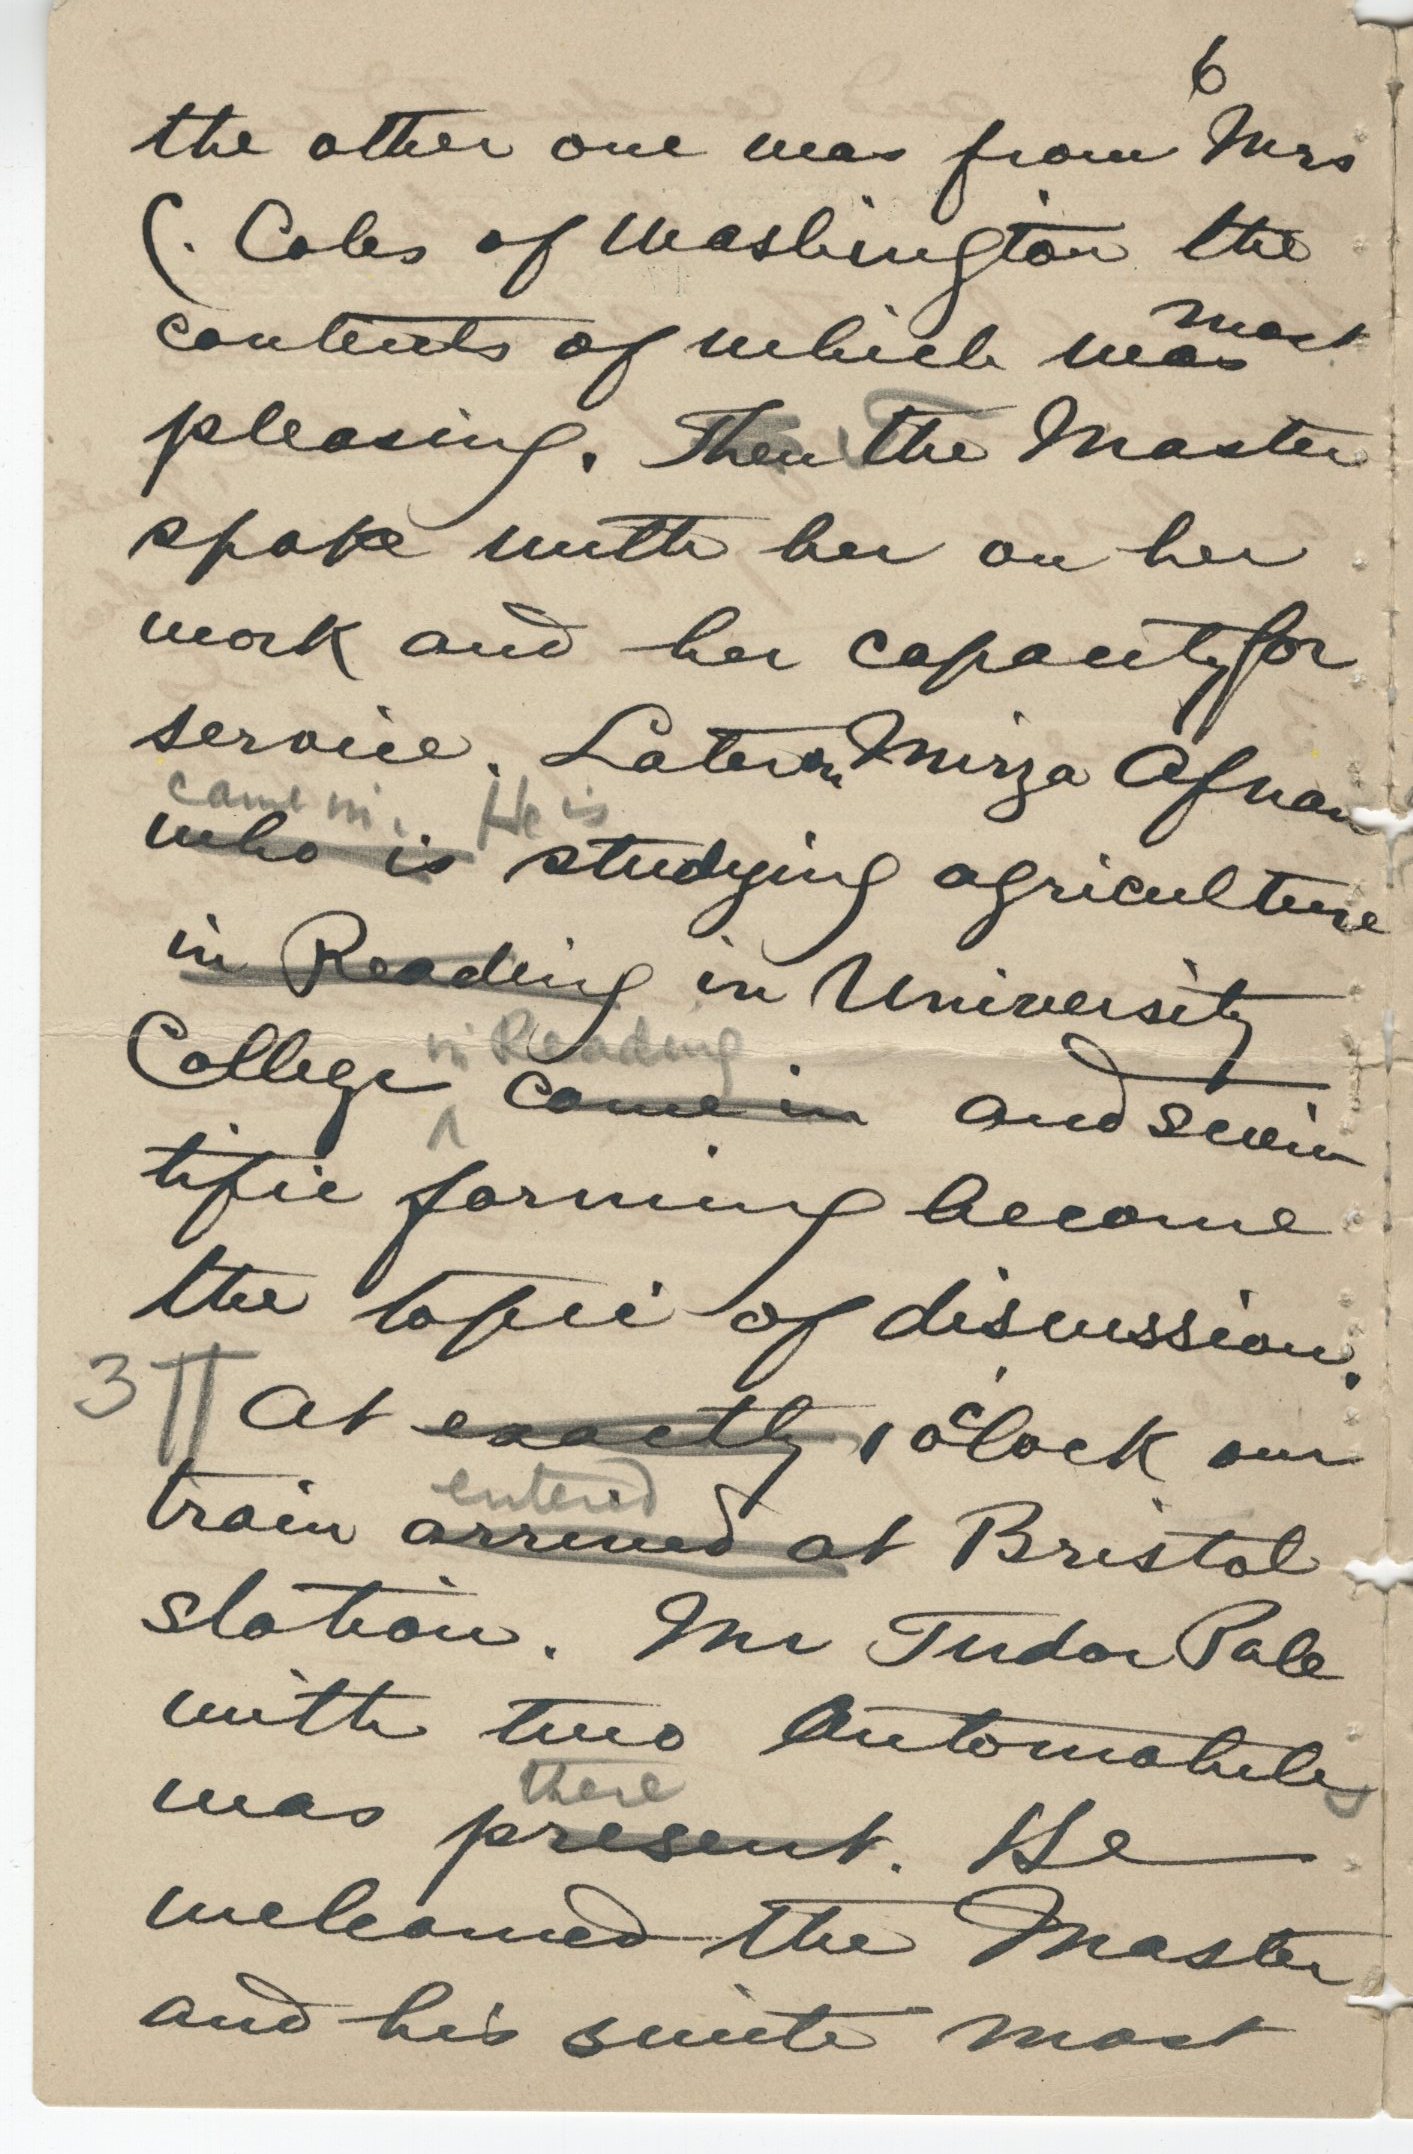 6
the other one was from Mrs
C. Coles of Washington the
contents of which was most
pleasing. Then the Master
spoke with her on her
work and her capacity for
service. Later on Mirza Afnan
came in. He is
who is studying agriculture
in Reading in University
in Reading
College come in and scien
tific farming become
the topic of discussion.
3 At exactly 1 o'clock our
entered
train arrived at Bristol
station. Mr Tudor Pole
with two automobiles
there
was present. He
welcomed the Master
and his suite most